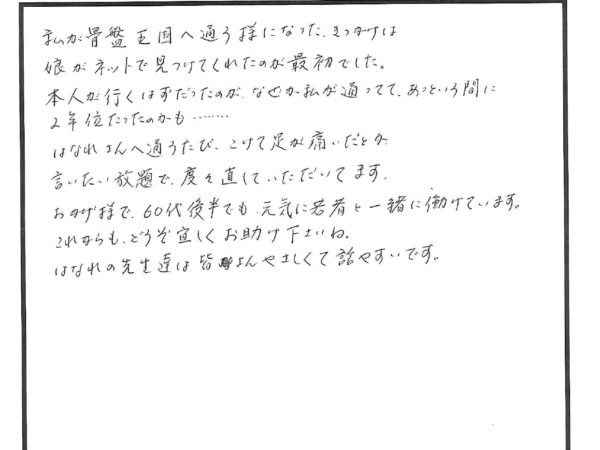 私が骨盤王国へ通う様になった、きっかけは
娘がネットで見つけてくれたのが最初でした。
本人が行くはずだったのが、なぜか私が通ってて、あっという間に
2年位たったのかも………
はなれさんへ通うたび、こけて足が痛いだとか
言いたい放題で、度々直していただいてます。
おかげ様で、60代後半でも、元気に若者と一緒に働けています。
これからも、どうぞ宜しくお助け下さいね。
はなれの先生達は皆さんやさしくて話やすいです。